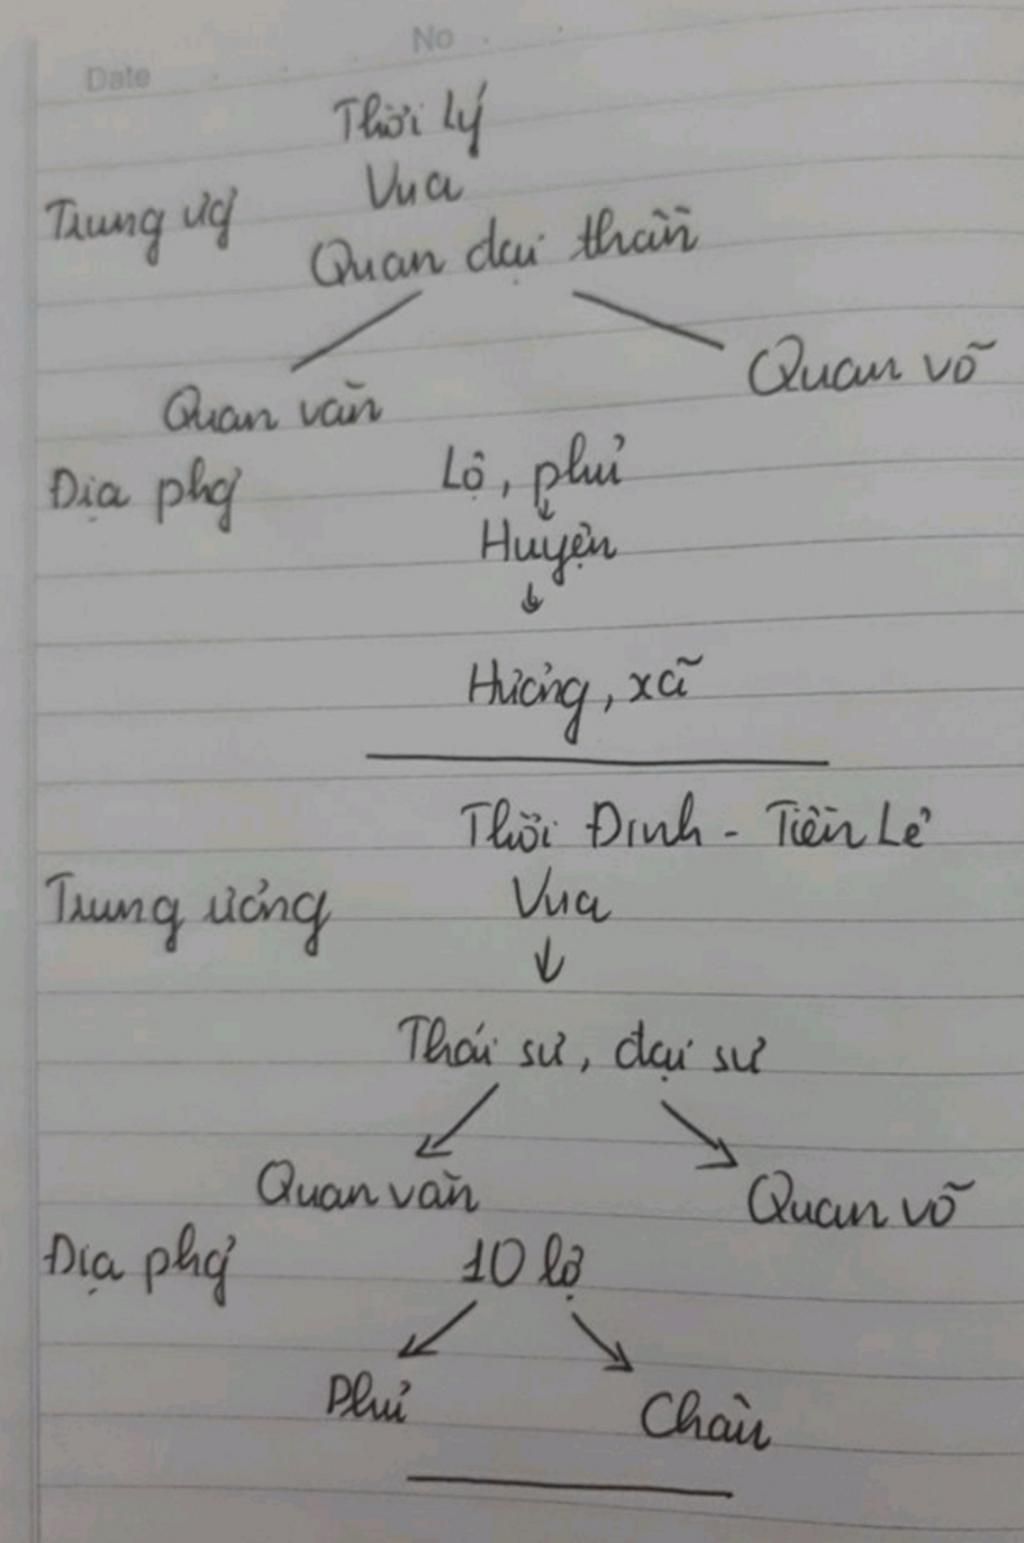 No
Date
Thời Lý
Trung ươ̛g Vua
Quan đại thần
Quan văn Quan võ
Địa phg Lộ, phủ
Huyện
Hương, xã
Thời Đinh - Tiền Lê
Trung ương Vua
Thái sư, đại sư
Quan văn Quan võ
Địa phg 10 lộ
Phủ Châu